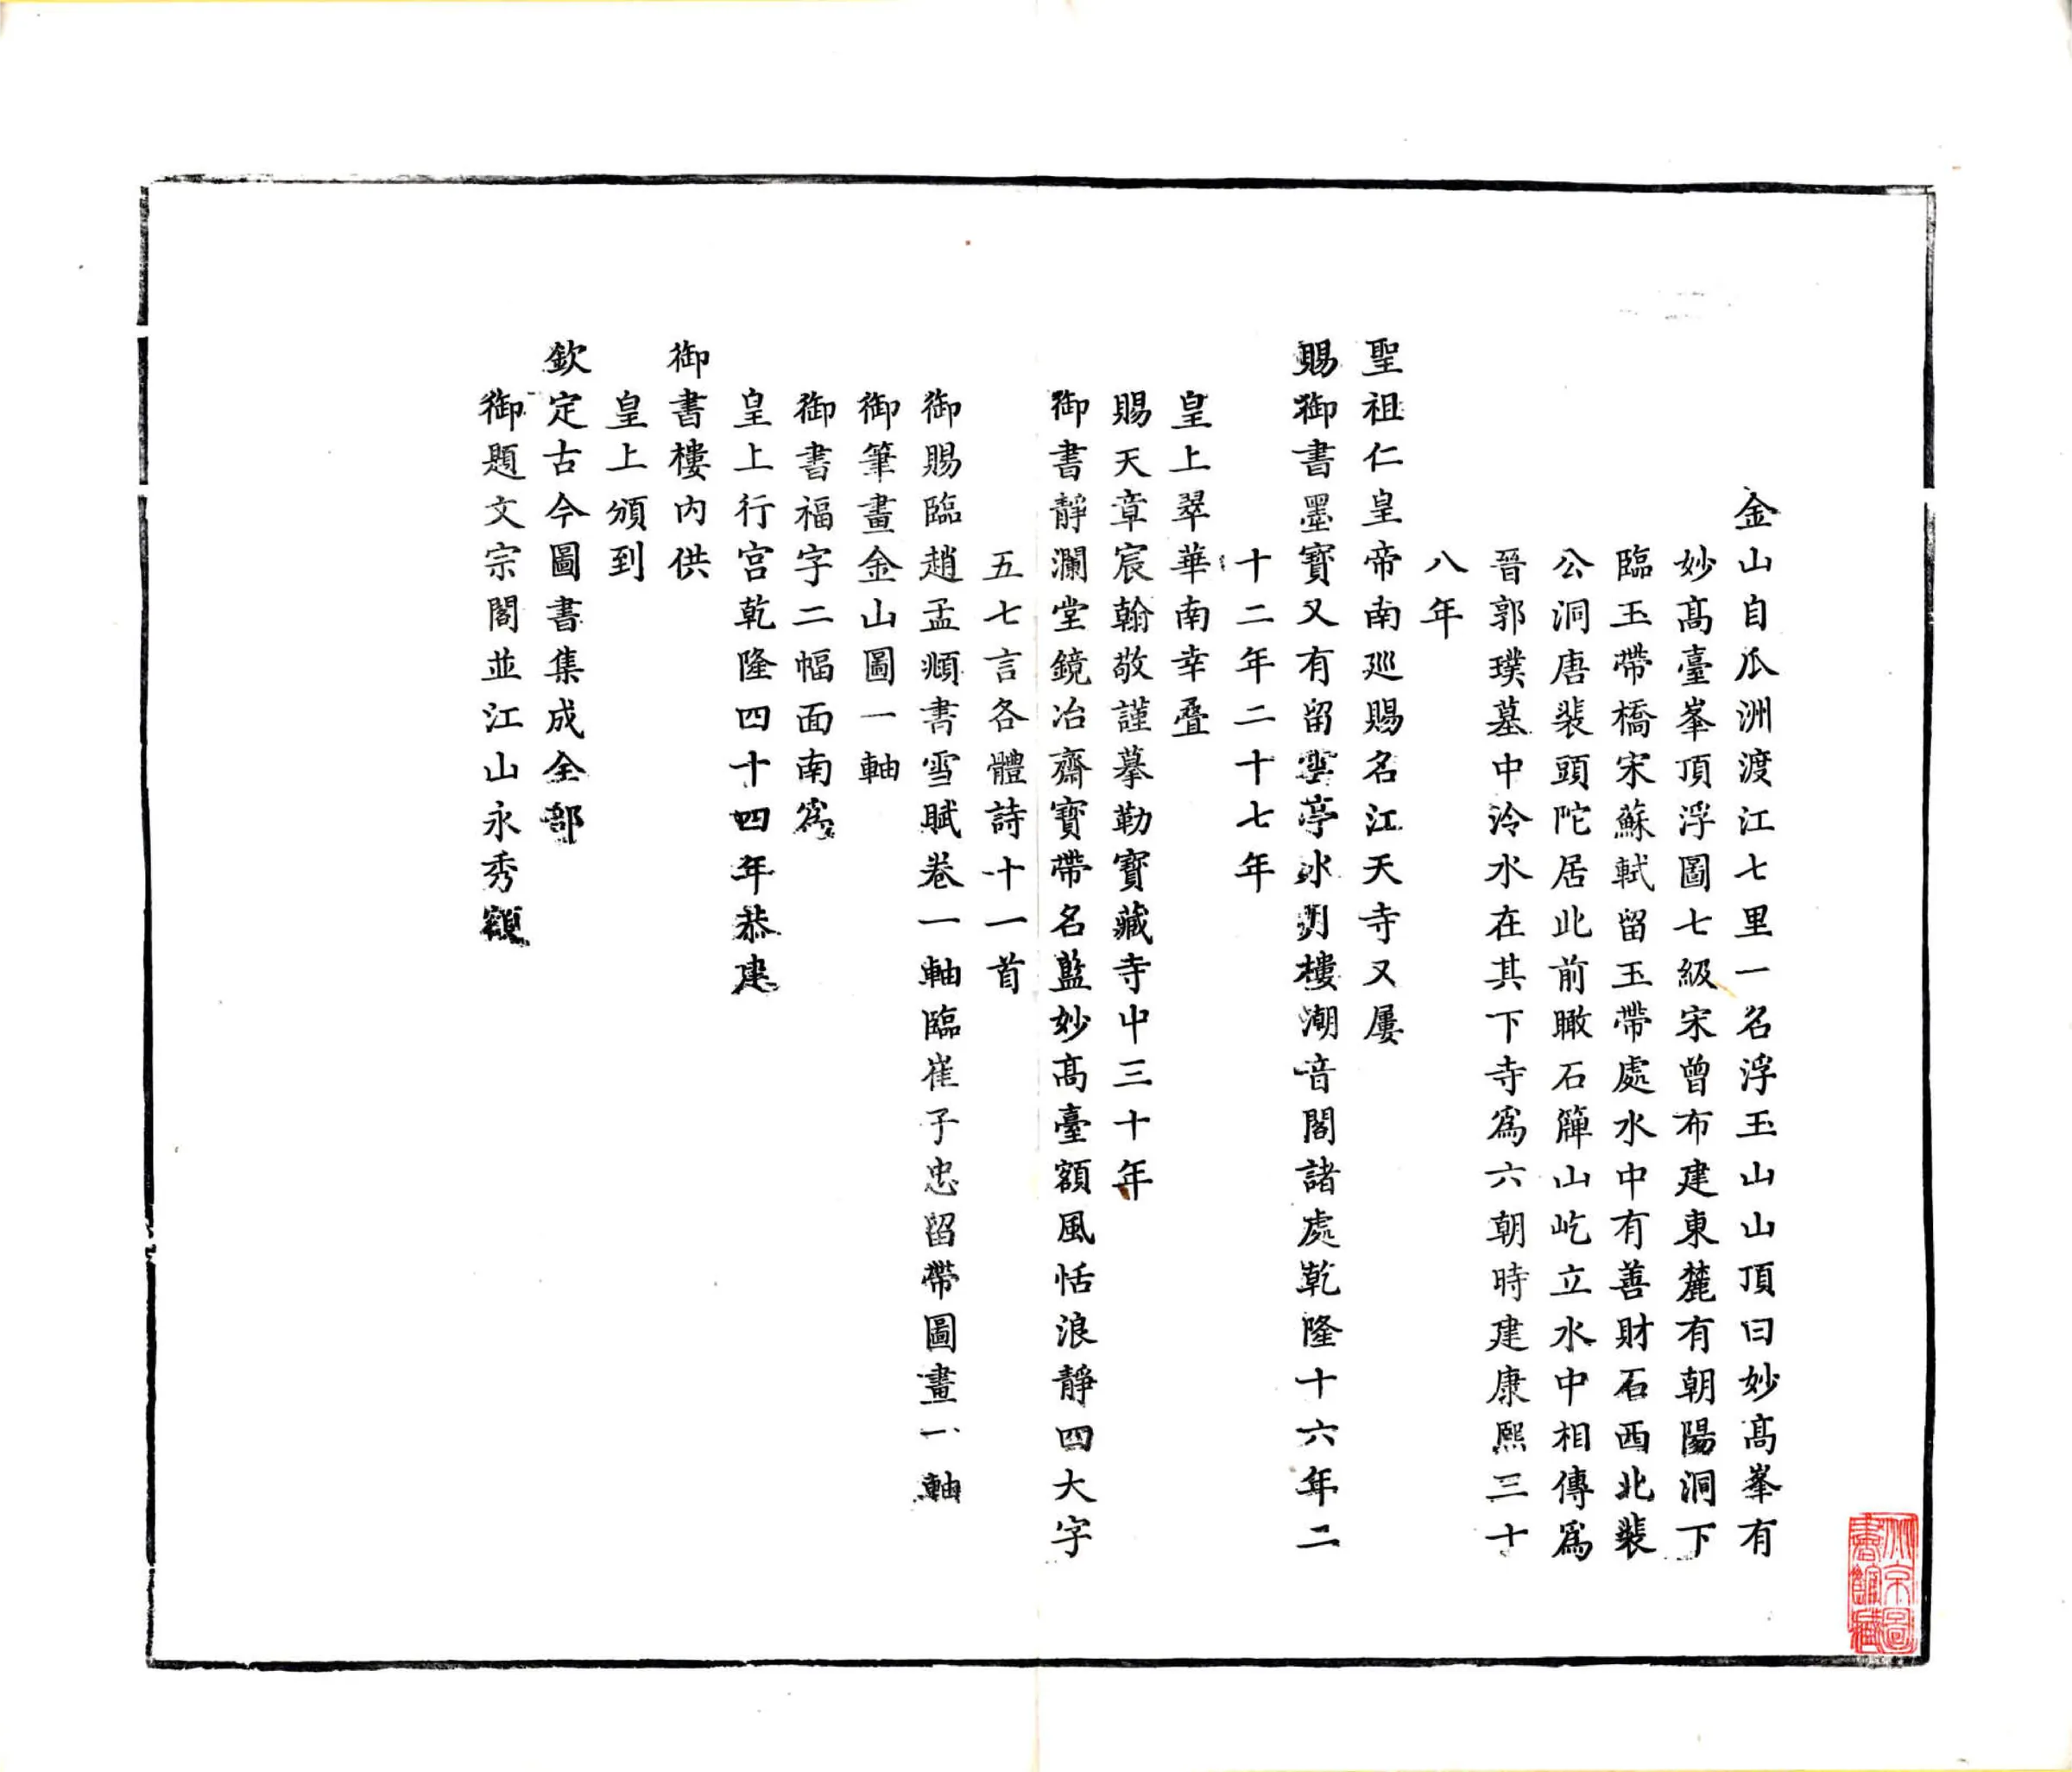 金山自瓜洲渡江七里一名浮玉山山頂曰妙高峯有
妙高臺峯頂浮圖七級宋曾布建東麓有朝陽洞下
臨玉帶橋宋蘇軾留玉帶處水中有善財石西北裴
公洞唐裴頭陀居此前瞰石簰山屹立水中相傳為
晉郭璞墓中泠水在其下寺為六朝時建康熙三十
八年
聖祖仁皇帝南廵賜名江天寺又屢
賜御書墨寳又有留雲亭氷玥樓潮音閣諸處乾隆十六年二
十二年二十七年
皇上翠華南幸疊
賜天章宸翰敬謹摹勒寳藏寺中三十年
御書靜瀾堂鏡治齋寳帶名藍妙高臺額風恬浪靜四大字
五七言各體詩十一首
御賜臨趙孟頫書雪賦卷一軸臨崔子忠留帶圖畫一軸
御筆畫金山圖一軸
御書福字二幅面南為
皇上行宮乾隆四十四年恭建
御書樓内供
皇上頒到
欽定古今圖書集成全部
御題文宗閣並江山永秀額
京圖書館藏